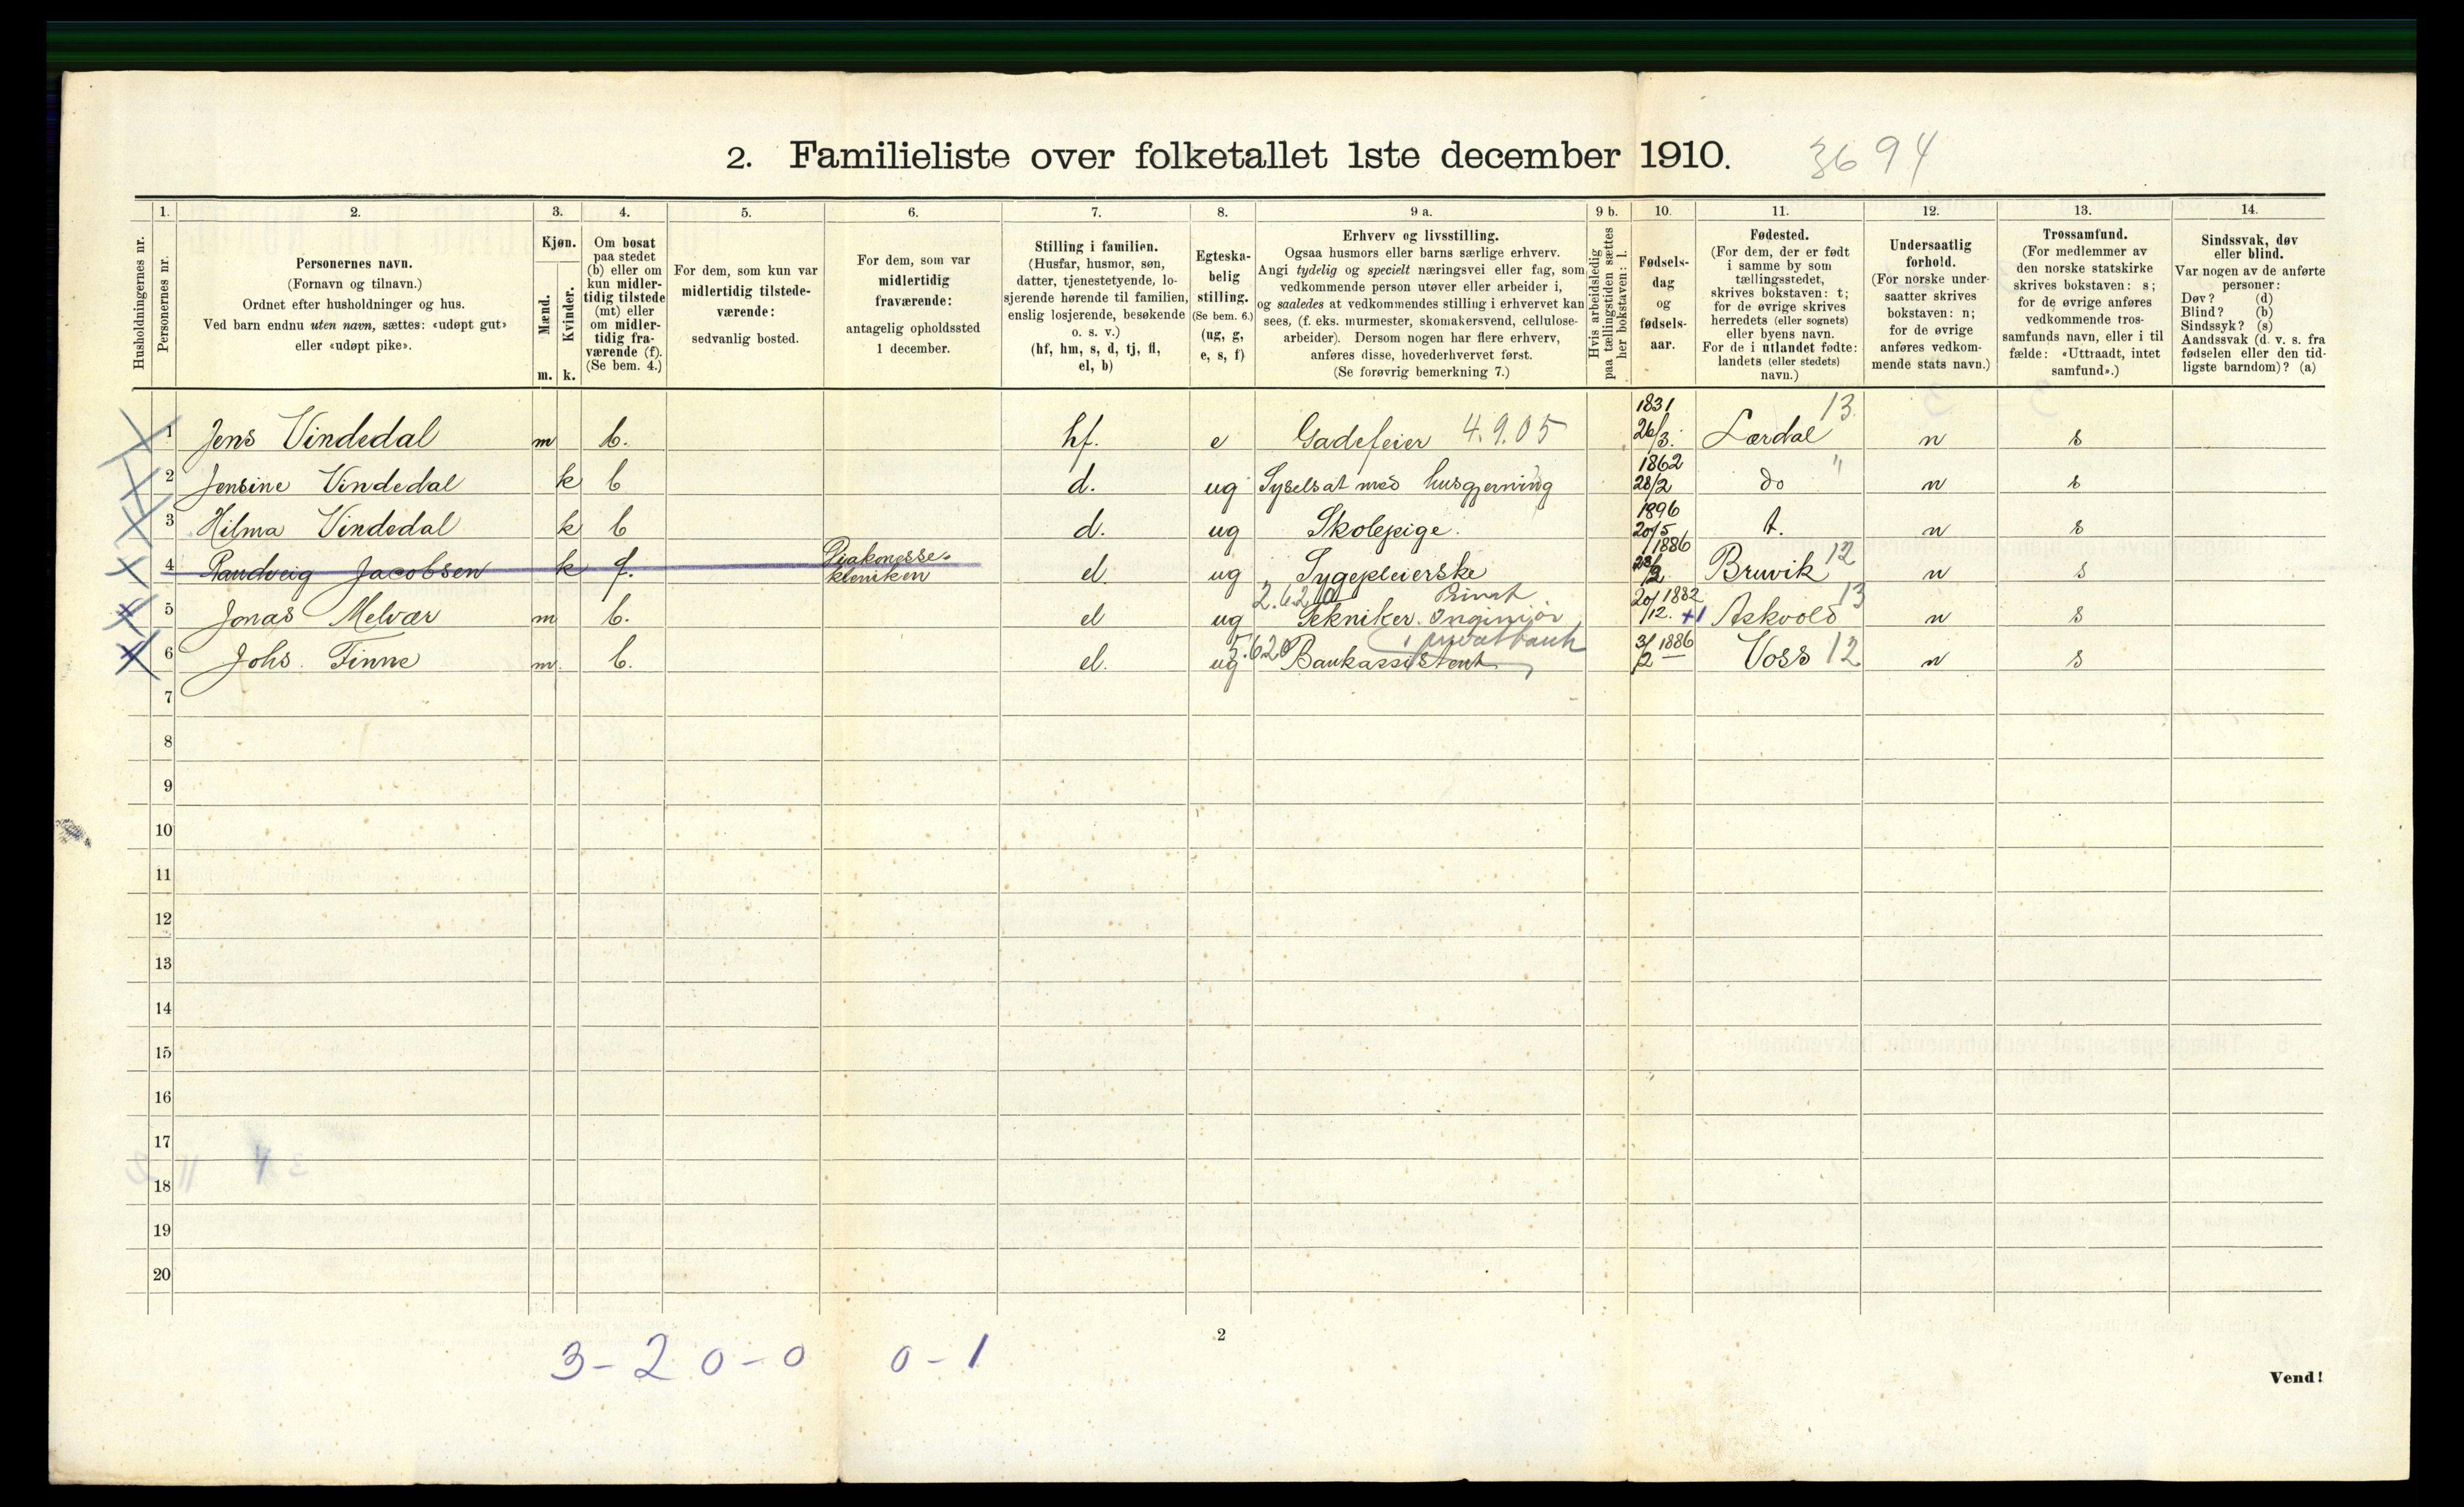 2. Familieliste over folketallet 1ste december 1910. 3694
Husholdningernes nr.
1. Personernes nr.
2. Personernes navn.
(Fornavn og tilnavn.)
Ordnet efter husholdninger og hus.
Ved barn endnu uten navn, sættes: «udøpt gut»
eller «udøpt pike».
3. Kjøn.
Mænd. Kvinder.
m. k.
4. Om bosat
paa stedet
(b) eller om
kun midler-
tidig tilstede
(mt) eller
om midler-
tidig fra-
værende (f).
(Se bem. 4.)
5. For dem, som kun var
midlertidig tilstede-
værende:
sedvanlig bosted.
6. For dem, som var
midlertidig
fraværende:
antagelig opholdssted
1 december.
7. Stilling i familien.
(Husfar, husmor, søn,
datter, tjenestetyende, lo-
sjerende hørende til familien,
enslig losjerende, besøkende
o. s. v.)
(hf, hm, s, d, tj, fl,
el, b)
8. Egteska-
belig
stilling.
(Se bem. 6.)
(ug, g,
e, s, f)
9 a. Erhverv og livsstilling.
Ogsaa husmors eller barns særlige erhverv.
Angi tydelig og specielt næringsvei eller fag, som
vedkommende person utøver eller arbeider i,
og saaledes at vedkommendes stilling i erhvervet kan
sees, (f. eks. murmester, skomakersvend, cellulose-
arbeider). Dersom nogen har flere erhverv,
anføres disse, hovederhvervet først.
(Se forøvrig bemerkning 7.)
9 b. Hvis arbeidsledig
paa tællingstiden sættes
her bokstaven: l.
10. Fødsels-
dag
og
fødsels-
aar.
11. Fødested.
(For dem, der er født
i samme by som
tællingsstedet,
skrives bokstaven: t;
for de øvrige skrives
herredets (eller sognets)
eller byens navn.
For de i utlandet fødte:
landets (eller stedets)
navn.)
12. Undersaatlig
forhold.
(For norske under-
saatter skrives
bokstaven: n;
for de øvrige
anføres vedkom-
mende stats navn.)
13. Trossamfund.
(For medlemmer av
den norske statskirke
skrives bokstaven: s;
for de øvrige anføres
vedkommende tros-
samfunds navn, eller i til
fælde: «Uttraadt, intet
samfund».)
14. Sindssvak, døv
eller blind.
Var nogen av de anførte
personer:
Døv? (d)
Blind? (b)
Sindssyk? (s)
Aandssvak (d. v. s. fra
fødselen eller den tid-
ligste barndom)? (a)
1 Jens Vindedal m b. hf. e Gadefeier 4.9.05 1831 26/3. Lærdal 13. n s
2 Jensine Vindedal k b d. ug Syselsat med husgjerning 1862 28/2 do " n s
3 Hilma Vindedal k b d. ug Skolepige. 1896 20/5 t. n s
4 Randveig Jacobsen k f. Diakonesse-
kleniken el ug Sygepleierske 1886 Bruvik 12 n s
5 Jonas Melvær m b. el ug Tekniker. Privat 20/12. 1882 +1 Askvold 13 n s
6 Johs. Finne m. b. el. ug Bankassistent i privatbank 3/2 1886 Voss 12 n s
7
8
9
10
11
12
13
14
15
16
17
18
19
20
3-2 0-0 0-1
2
Vend!